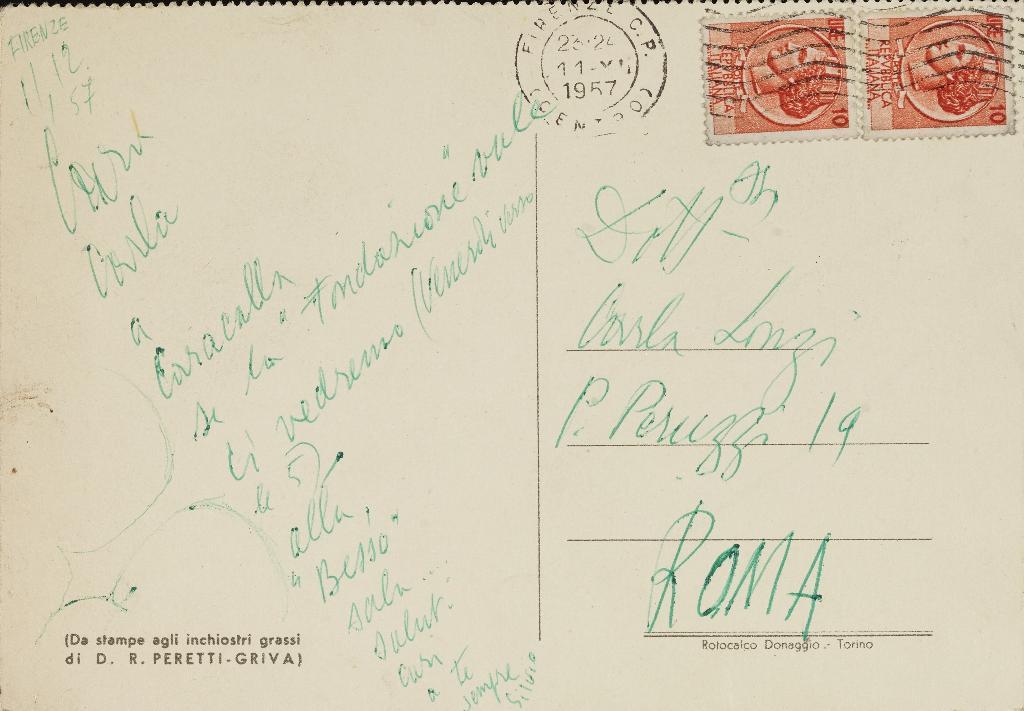 FIRENZE
1/12
57
Cara
Carla
a
Caracalla
se la "Fondazione" vale
ci vedremo (Venerdì verso
le 5)
alla
"Bessò"
salu...
salut.
cari
a te
sempre
Silvio
(Da stampe agli inchiostri grassi
di D. R. PERETTI-GRIVA)
FIRENZE C.P.
23-24
1957
CENTRO
LIRE
REPUBBLICA
ITALIANA
10
LIRE
REPUBBLICA
ITALIANA
10
Dott
Carla Lonzi
P. Peruzzi 19
ROMA
Rotocalco Donaggio - Torino